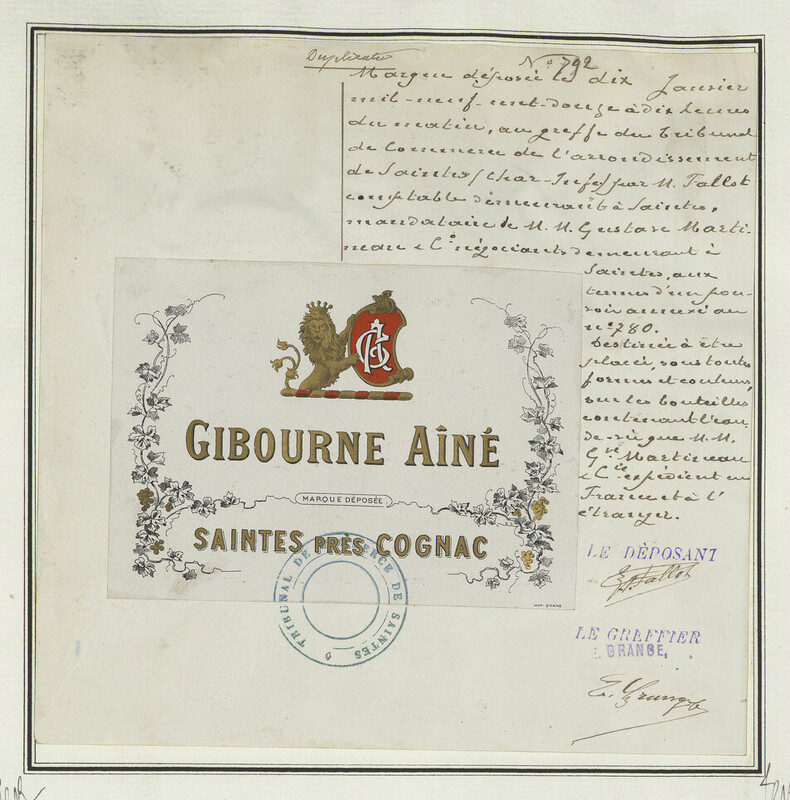 Duplicata
N° 792
Marque déposée le dix Janvier
mil-neuf-cent-douze à dix heures
du matin, au greffe du Tribunal
de Commerce de l'arrondissement
de Saintes (Char-Infe) par M. Fallot
comptable demeurant à Saintes,
mandataire de M.M. Gustave Marti-
neau & Cie négociants demeurant à
Saintes, aux
termes d'un pou-
voir annexé au
n° 780.
Destinée à être
placée, sous toutes
formes et couleurs,
sur les bouteilles
contenant l'eau-
de-vie que M.M.
Gve Martineau
& Cie expédient en
France et à l'
étranger.
GIBOURNE AÎNÉ
MARQUE DÉPOSÉE
SAINTES PRÈS COGNAC
TRIBUNAL DE COMMERCE DE SAINTES
LE DÉPOSANT
Fallot
LE GREFFIER
GRANGE,
E. Grange